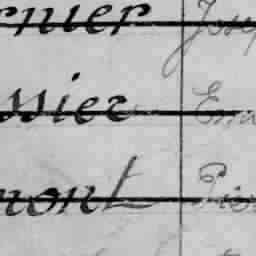 rnier Josep
ssier Em
mont Pier